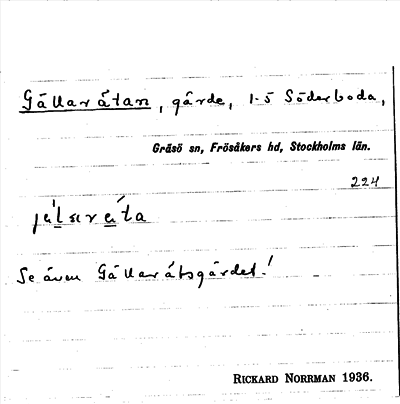 Gällaråtan, gärde, 1-5 Söderboda,
Gräsö sn, Frösåkers hd, Stockholms län.
224
Se även Gällaråtsgärdet!
RICKARD NORRMAN 1936.